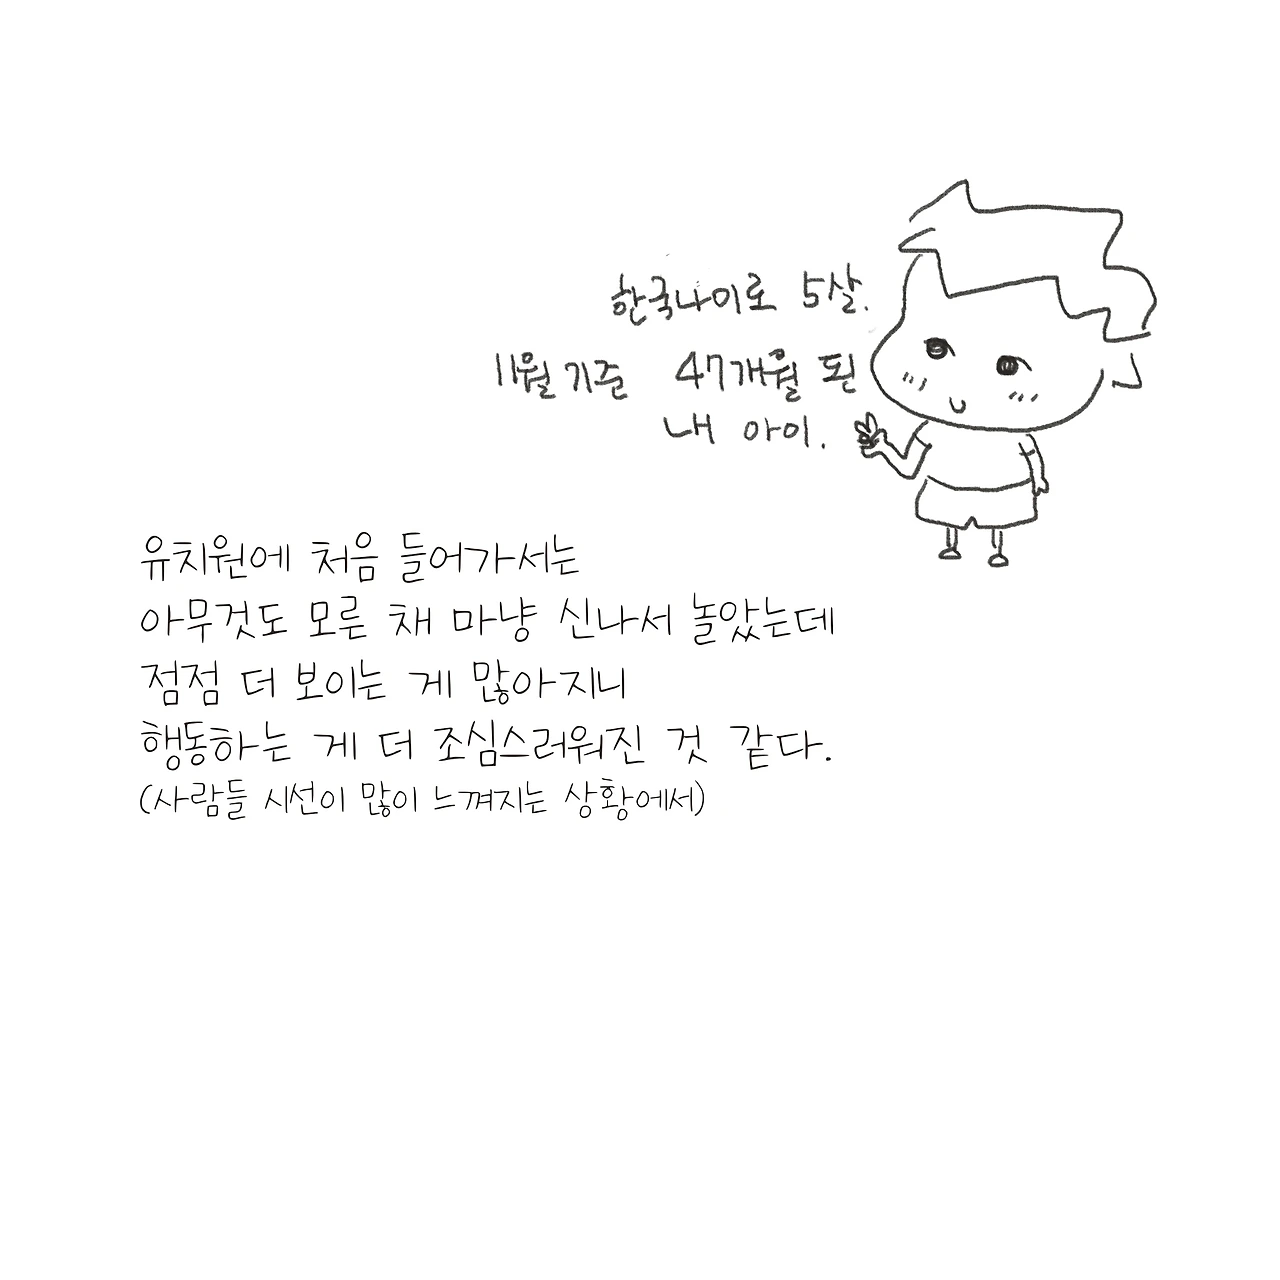 한국나이로 5살.
11월 기준 47개월 된
내 아이.
유치원에 처음 들어가서는
아무것도 모른 채 마냥 신나서 놀았는데
점점 더 보이는 게 많아지니
행동하는 게 더 조심스러워진 것 같다.
(사람들 시선이 많이 느껴지는 상황에서)